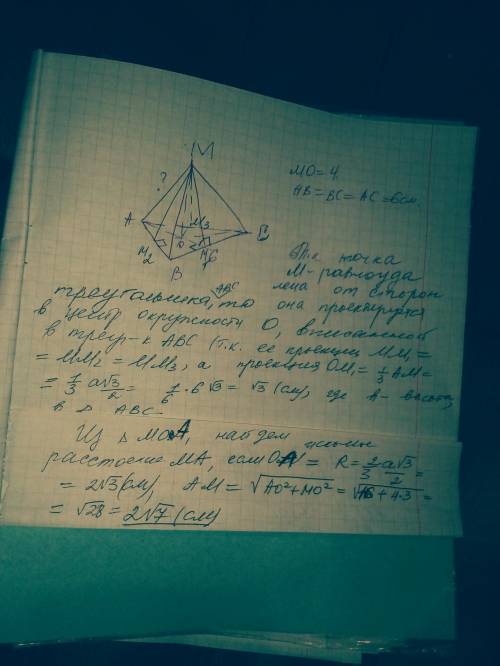 M
?
A
M₂
B
O
M₃
M₁
6
MO = 4
AB = BC = AC = 6см.
Т.к. точка
M - равноуда
лена от сторон
треугольника ABC, то она проектируется
в центр окружности O, вписанной
в треу-к ABC (т.к. её проекции MM₁ =
= MM₂ = MM₃, а проекция OM₁ = 1/3 AM =
= 1/3 a√3/2 = 1/6 · 6√3 = √3 (см), где в - высота
в Δ ABC.
Из Δ MOA, найдем
расстояние MA, если OA = R = 2/3 a√3/2 =
= 2√3 (см), AM = √AO² + MO² = √16 + 4·3 =
= √28 = 2√7 (см)